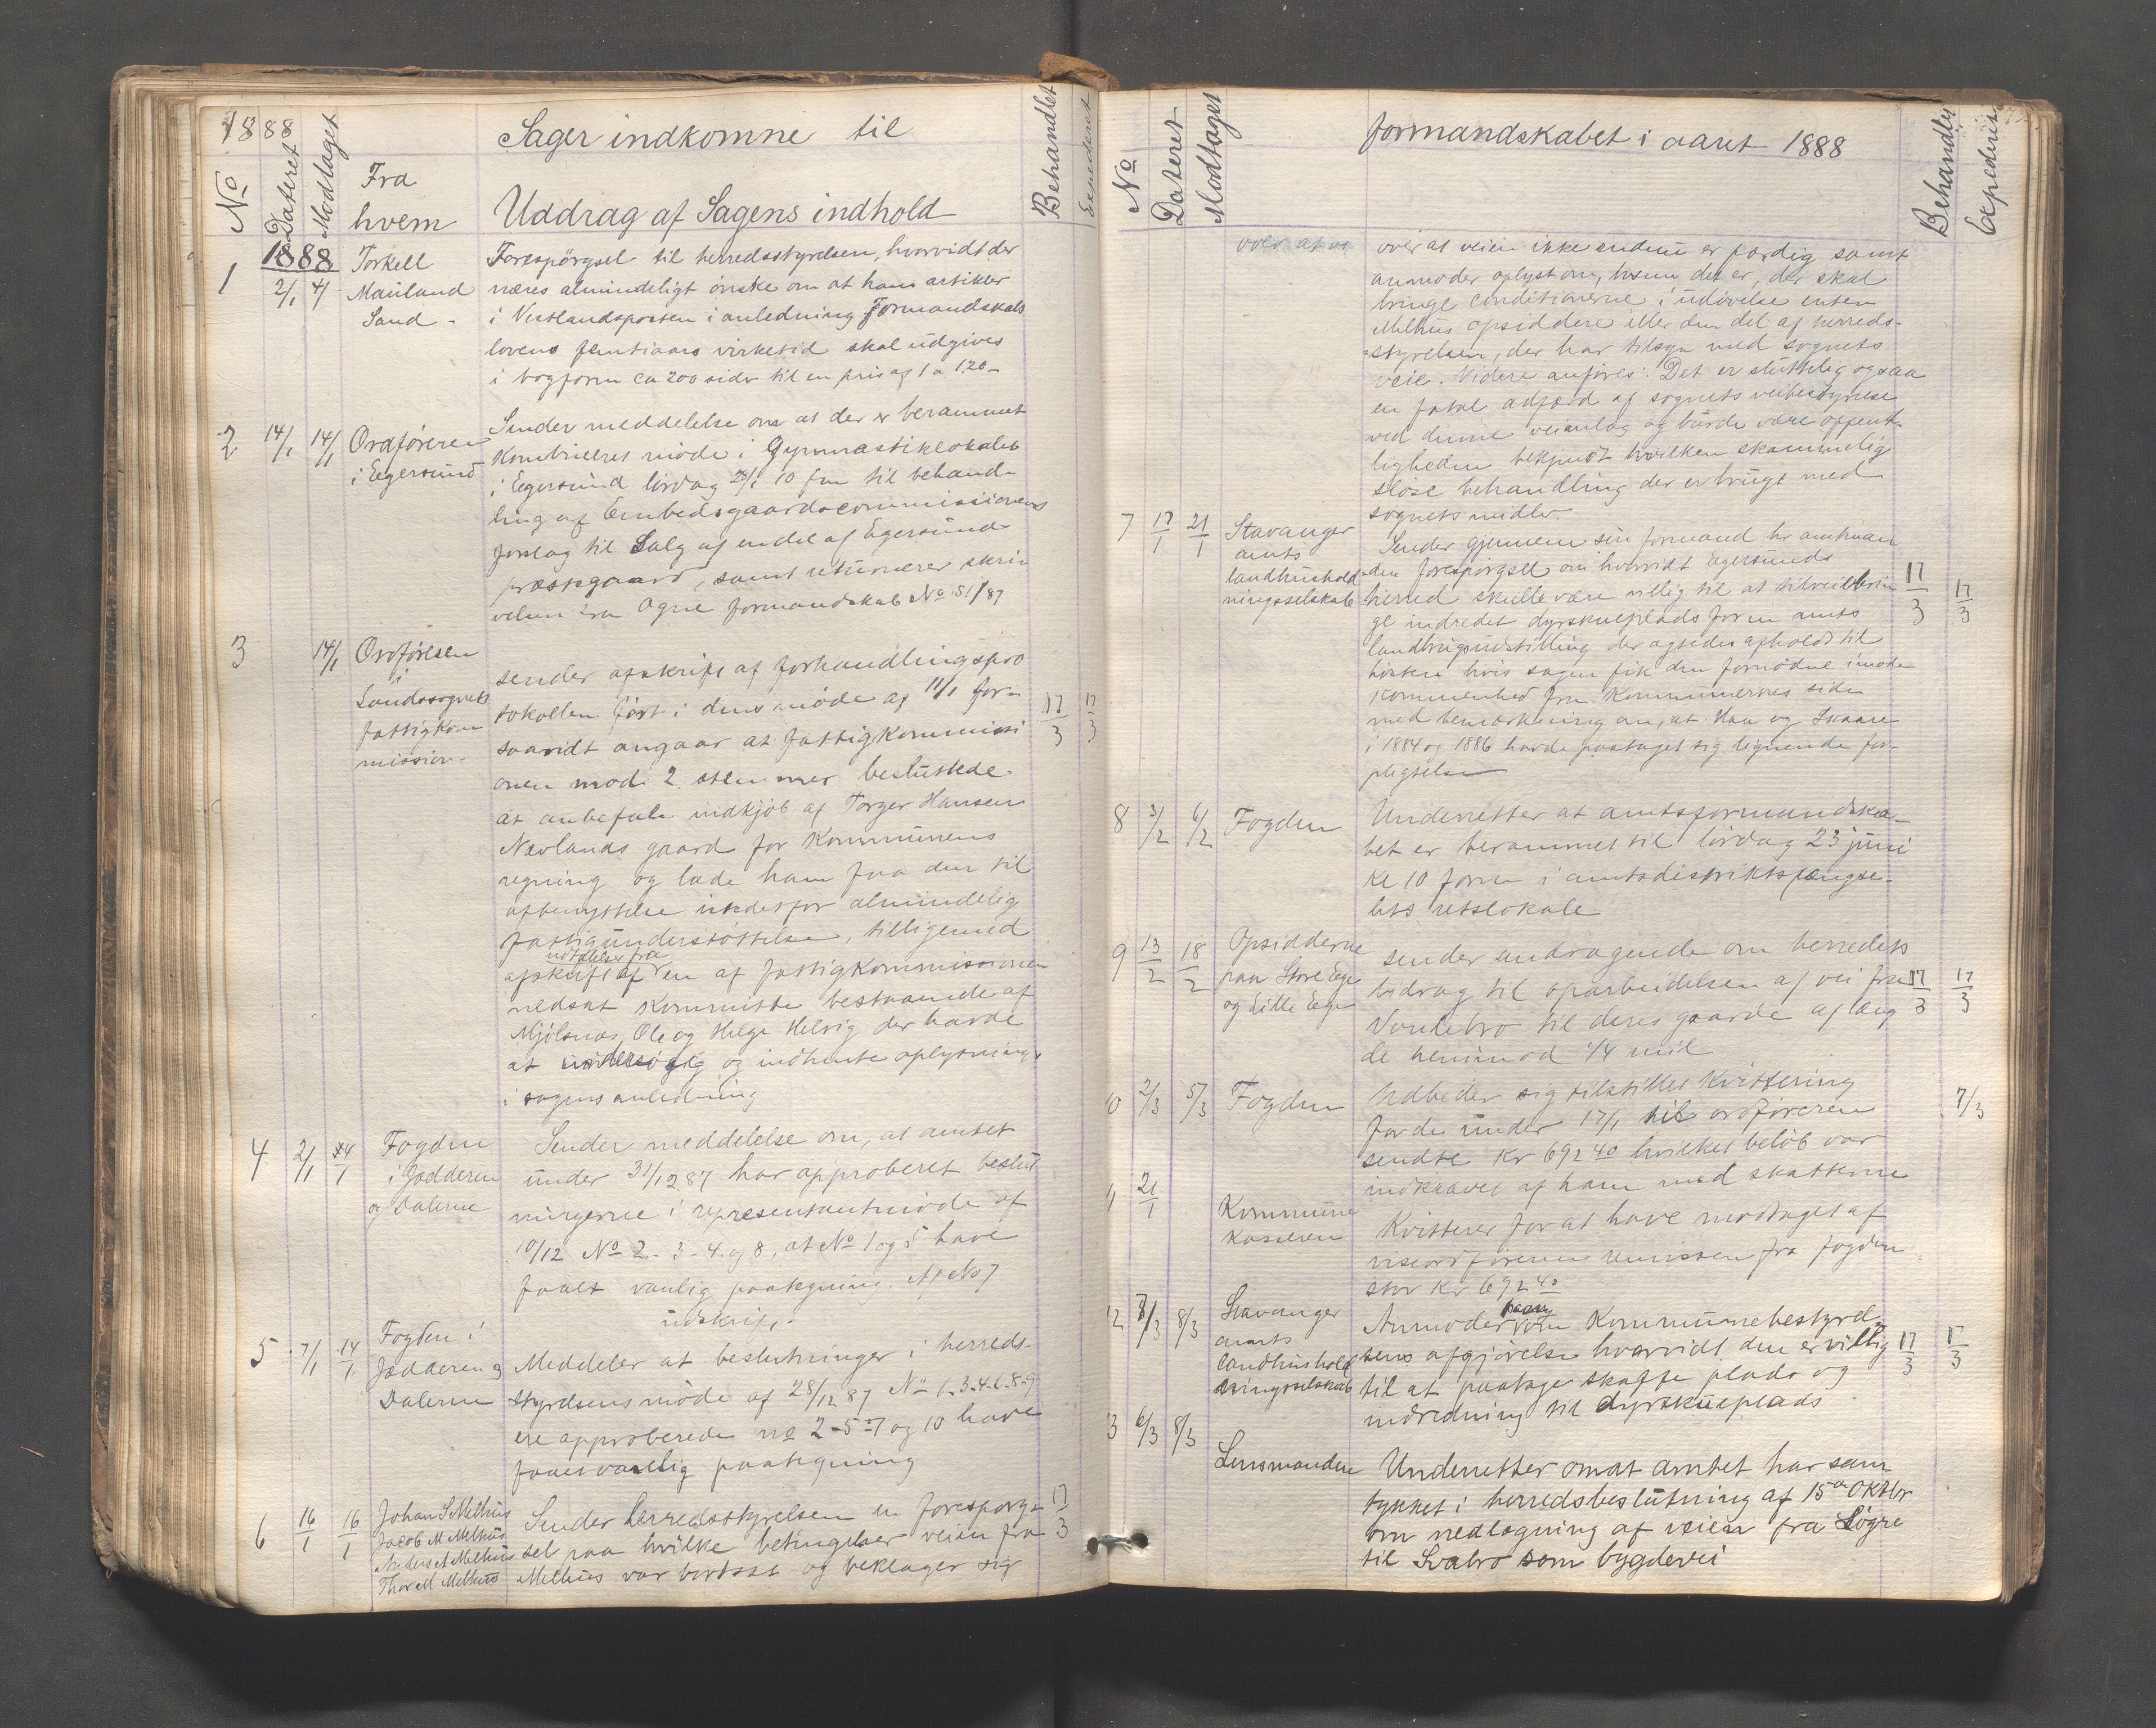 1888
Sager indkomne til
No
Dateret
Modtaget
Fra
hvem
Uddrag af Sagens indhold
Behandlet
Expederet
1888
1
2/1
4/1
Torkell
Mauland
Sand -
Forespörgsel til herredsstyrelsen, hvorvidt der
næres almindeligt ønske om at hans artikler
i Vestlandsposten i anledning Formandskabs
lovens femtiaars virketid skal udgives
i bogform ca 200 sider til en pris af 1 a 1.20 -
2
14/1
14/1
Ordføreren
i Egersund
Sender meddelelse om at der er berammet
Kombineret møde i Gymnastiklokalet
i Egersund lördag 28/1 10 fm til behand-
ling af Embedsgaardscommissionens
forslag til Salg af endel af Egersunds
præstegaard, samt returnerer skri-
velsen fra Ogne formandskab No 51/87
3
14/1
Ordføreren
i
Landssognets
fattigkom
mission -
sender afskrift af forhandlingspro
tokollen ført i dens møde af 11/1 for-
saavidt angaar at fattigkommissi
onen mod 2 stemmer besluttede
at anbefale indkjøb af Torger Hansen
Nævlands gaard for Kommunens
regning og lade ham faa den til
afbenyttelse istedetfor almindelig
fattigunderstøttelse, tilligemed
udtalelse fra
afskrift af en af fattigkommissionen
nedsat Kommitte bestaaende af
Mjølsnæs, Ole og Helge Helvig der havde
at undersøge og indhente oplysninger
i sagens anledning
17/3
17/3
4
2/1
14/1
Fogden
i Jædderen
og Dalerne
Sender meddelelse om, at amtet
under 31/12 87 har approberet beslut
ningerne i representantmøde af
10/12 No 2-3-4 og 8, at No 1 og 5 have
faaet vanlig paategning. Af No 7
udskrift.
5
7/1
14/1
Fogden i
Jædderen og
Dalerne
Meddeler at beslutninger i herreds-
styrelsens møde af 28/12 87 No 1-3-4-6-8-9
ere approberede no 2-5-7 og 10 have
faaet vanlig paategning
6
16/1
16/1
Johan S Melhus
Jacob M Melhus
Anders A Melhus
Thore M Melhus
Sender herredsstyrelsen en forespørg-
sel paa hvilke betingelser veien fra
Melhus var bortsat og beklager sig
17/3
formandskabet i aaret 1888
No
Dateret
Modtaget
Behandlet
Expederet
over at ve
over at veien ikke endnu er færdig samt
anmoder oplyst om, hvem det er, der skal
bringe conditionerne i udøvelse enten
Melhus opsiddere eller den del af herreds-
styrelsen, der har tilsyn med sognets
veie. Videre anføres: Det er sluttelig ogsaa
en fatal adfærd af sognets veibestyrelse
ved denne veianlæg og burde være offent-
ligheden bekjendt hvilken skammelig
sløse behandling der er brugt med
sognets midler.
7
17/1
21/1
Stavanger
amts
landhushold-
ningsselskab
Sender gjennem sin formand hr amtman
den forespørgsel om hvorvidt Egersunds
herred skulle være villig til at tilveiebrin
ge indredet dyrskueplads for en amts
landbrugsudstilling der agtedes afholdt til
høsten hvis sagen fik den fornødne imøde
kommenhed fra Kommunernes side
med bemærkning om, at Haa og Skaare
i 1884 og 1886 havde paataget sig lignende for-
pligtelse
17/3
17/3
8
3/2
6/2
Fogden
Underretter at amtsformandska-
bet er berammet til lørdag 23 juni
Kl 10 form i amtsdistriktsfængse-
lets retslokale
9
13/2
18/2
Opsidderne
paa Store Ege
og Lille Ege
sender andragende om herredets
bidrag til oparbeidelsen af vei fra
til deres gaarde af læng
de henimod 1/4 mil
17/3
17/3
0
2/3
5/3
Fogden
Udbeder sig tilstillet Kvittering
for de under 17/1 til ordføreren
sendte Kr 692 40 hvilket beløb var
indkrævet af ham med skatterne
7/3
1
21/1
Kommune
Kasseren
Kvitterer for at have modtaget af
viseordføreren remissen fra fogden
stor Kr 692 40
12
7/3
8/3
Stavanger
amts
landhushold
ningsselskab
Anmoder paany om Kommunebestyrel-
sens afgjørelse hvorvidt den er villig
til at paatage skaffe plads og
indredning til dyrskueplads
17/3
17/3
3
6/3
8/3
Lensmanden
Underretter om at amtet har sam
tykket i herredsbeslutning af 15de Oktbr
om nedlægning af veien fra Løgre
til Svabro som bygdevei